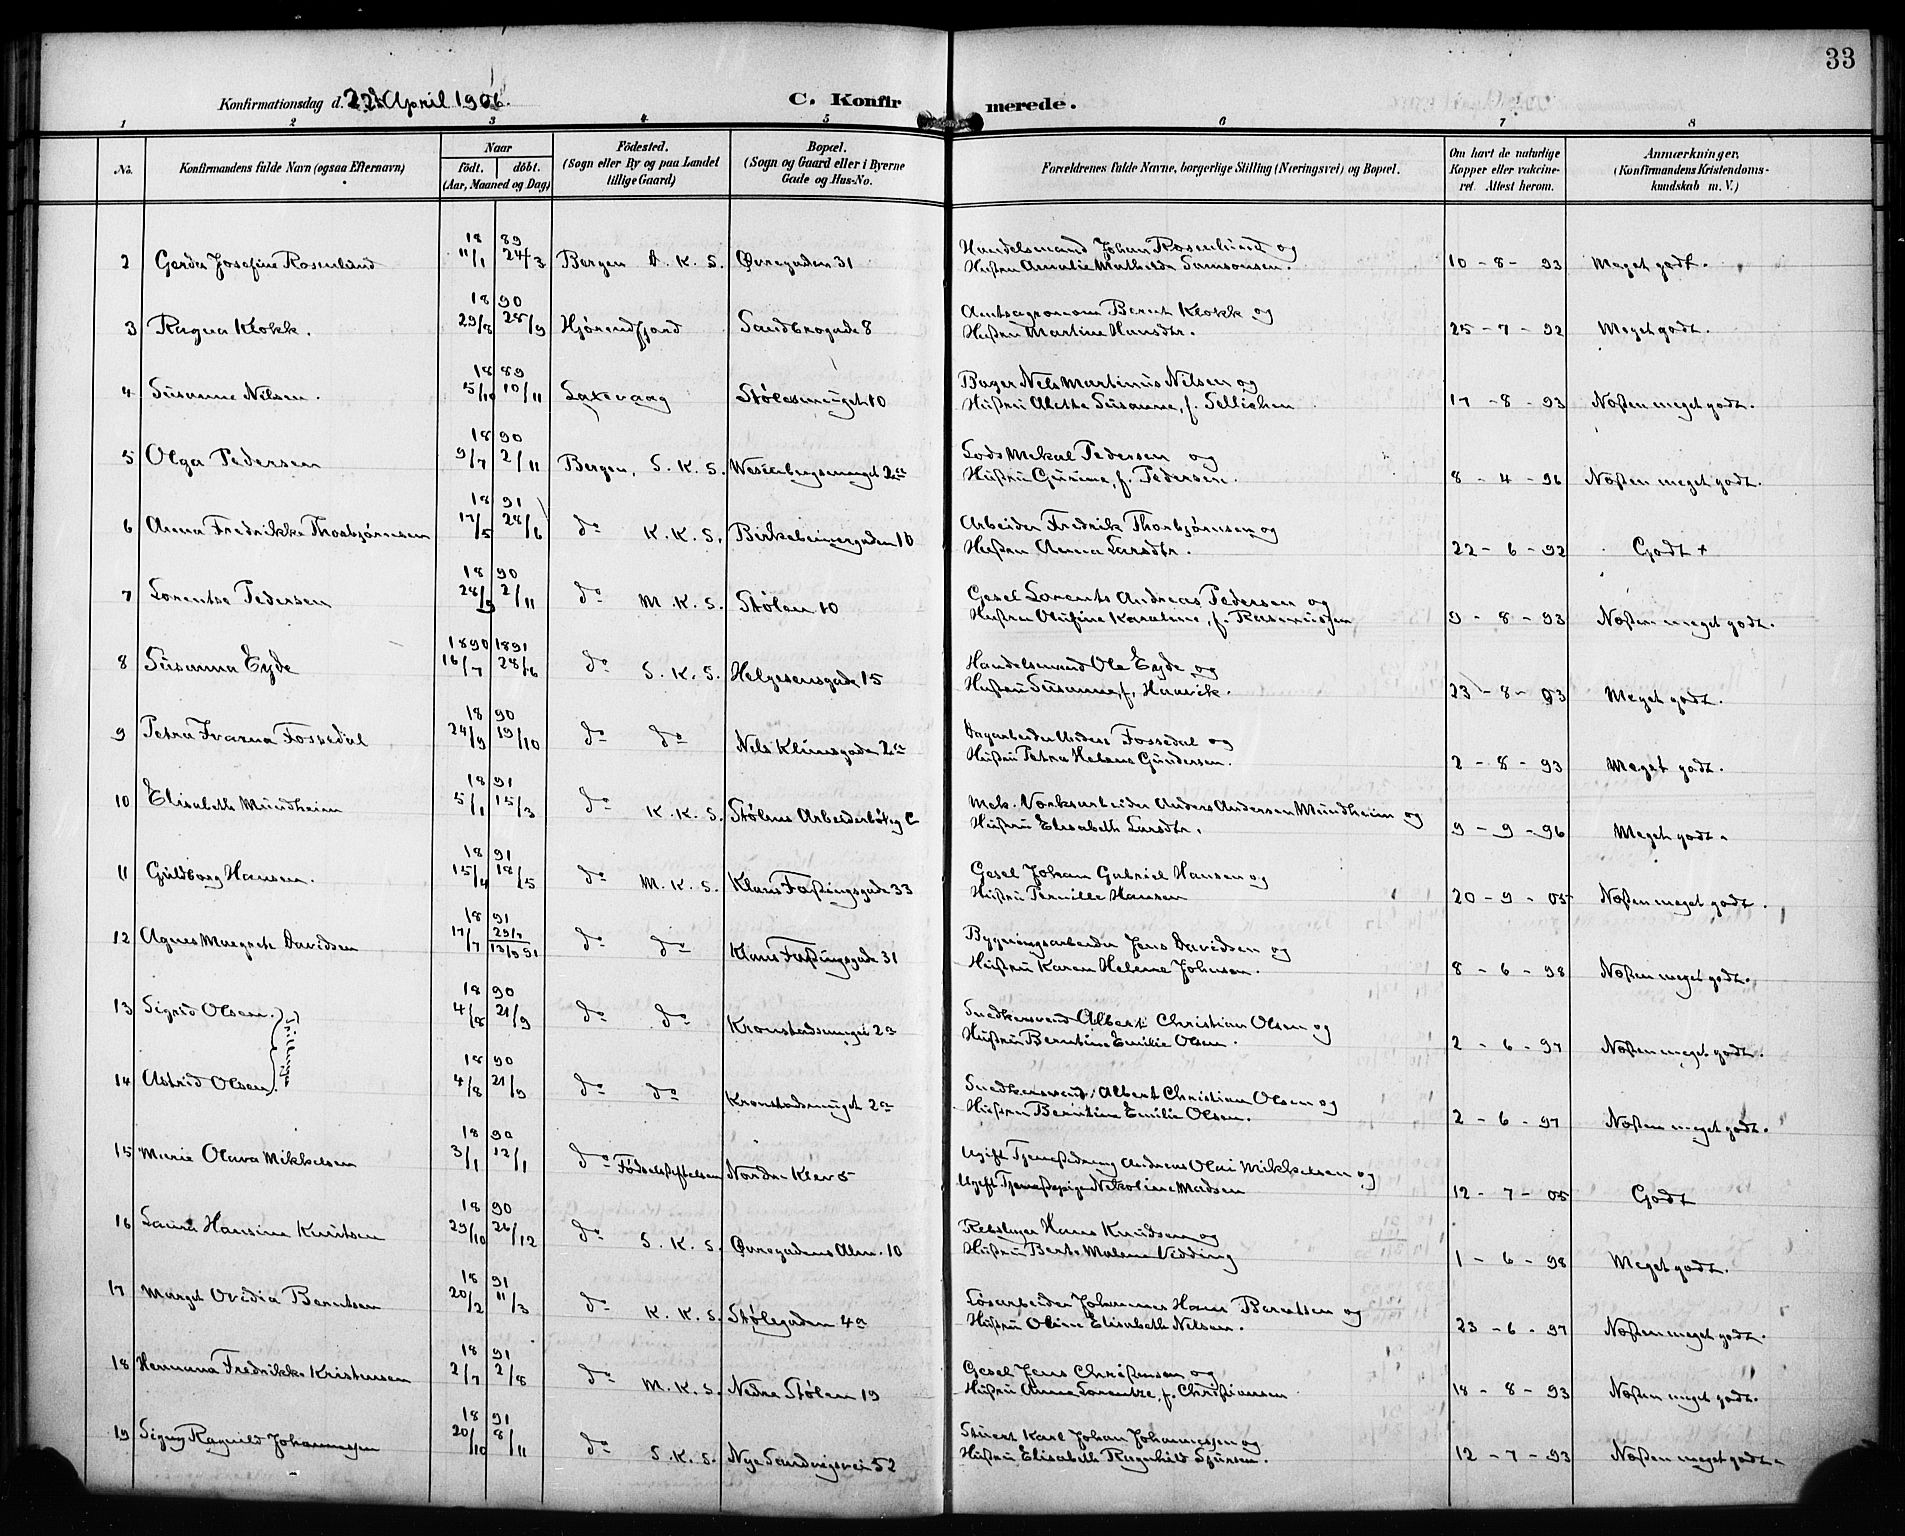 33
Konfirmationsdag d. 22de April 1906.
C. Konfirmerede.
1 2 3 4 5 6 7 8
No.
Konfirmandens fulde Navn (ogsaa Efternavn)
Naar
født. døbt.
(Aar, Maaned og Dag)
Fødested.
(Sogn eller By og paa Landet
tillige Gaard)
Bopæl.
(Sogn og Gaard eller i Byerne
Gade og Hus-No.
Forældrenes fulde Navne, borgerlige Stilling (Næringsvei) og Bopæl.
Om havt de naturlige
Kopper eller vakcine-
ret. Attest herom.
Anmærkninger.
(Konfirmandens Kristendoms-
kundskab m. V.)
18 89
2 Gerda Josefine Rosenlund 11/1 24/3 Bergen D. K. S. Øvregaden 31 Handelsmand Johan Rosenlund og
Hustru Amalie Mathilde Samsonsen. 10-8-93 Meget godt.
18 90
3 Ragna Klokk. 29/8 28/9 Hjørendfjord Sandbrogade 8 Amtsagronom Berent Klokk og
Hustru Martine Hansdtr. 25-7-92 Meget godt.
18 89
4 Susanne Nilsen. 5/10 10/11 Laxevaag Stølesmuget 10 Bager Nels Martinus Nilsen og
Hustru Alethe Susanne, f. Sellichen 17-8-93 Næsten meget godt.
18 90
5 Olga Pedersen 9/7 2/11 Bergen, S. K. S. Wesenbergsmuget 2a Lods Mekal Pedersen og
Hustru Gurine, f. Pedersen. 8-4-96 Næsten meget godt.
18 91
6 Anna Fredrikke Thorbjørnsen 17/5 28/6 do K. K. S. Birkebeinergaden 10 Arbeider Fredrik Thorbjørnsen og
Hustru Anna Larsdtr. 22-6-92 Godt +
18 90
7 Lorentse Pedersen 28/9 2/11 do M. K. S. Stølen 10 Gesel Lorents Andreas Pedersen og
Hustru Olufine Karoline, f. Rasmussen 9-8-93 Næsten meget godt.
1890 1891
8 Susanna Eyde 16/7 28/6 do S. K. S. Helgesensgade 15 Handelsmand Ole Eyde og
Hustru Susanne, f. Hauvik. 23-8-93 Meget godt.
18 90
9 Petra Fossedal 24/9 19/10 do do Nels Klimsgade 2a Dagarbeider Anders Fossedal og
Hustru Petra Helene Gundersen. 2-8-93 Meget godt.
18 91
10 Elisabeth Mundheim 5/1 15/3 do K. K. S. Stølens Arbeiderbolig C Mek. Værksarbeider Anders Andersen Mundheim og
Hustru Elisabeth Larsdtr. 9-9-96 Meget godt.
18 91
11 Guldborg Hansen. 15/4 18/5 do M. K. S. Klaus Fastingsgade 33 Gesel Johan Gabriel Hansen og
Hustru Pernille Hansen 20-9-05 Næsten meget godt.
18 91
12 Agnes Margrete Davidsen 17/7 29/7 13/9 91 do do Klaus Fastingsgade 31 Bygningsarbeider Jens Davidsen og
Hustru Karen Helene Johnsen. 8-6-98 Næsten meget godt.
18 90
13 Sigrid Olsen. 4/8 21/9 do do Kronstadsmuget 2a Snedkersvend Albert Christian Olsen og
Hustru Berntine Emilie Olsen. 2-6-97 Næsten meget godt.
Tvillinger
18 90
14 Astrid Olsen. 4/8 21/9 do do Kronstadsmuget 2a Snedkersvend Albert Christian Olsen og
Hustru Berntine Emilie Olsen. 2-6-97 Næsten meget godt.
18 90
15 Marie Olava Mikkelsen 3/1 12/1 do Fødselsstiftelsen Nordre Klev 5 Ugift Tjenestedreng Andreas Olai Mikkelsen og
Ugift Tjenestepige Nekoline Madsen 12-7-05 Godt
18 90
16 Laura Hansine Knutsen 29/10 26/12 do S. K. S. Øvregadens Alm. 10 Rebslager Hans Knudsen og
Hustru Berte Malene Vedding 1-6-98 Meget godt.
18 91
17 Marget Ovidia Berntsen 20/2 11/3 do K. K. S. Stølegaden 4a Løsarbeider Johannes Hans Berntsen og
Hustru Oline Elisabeth Nilsen. 23-6-97 Næsten meget godt.
18 91
18 Hermana Fredrikke Kristensen 2/7 2/8 do M. K. S. Nedre Stølen 19 Gesel Jens Christensen og
Hustru Anna Lorentze, f. Christiansen 18-8-93 Næsten meget godt.
18 91
19 Signy Ragnild Johannessen 20/10 8/11 do S. K. S. Nye Sandvigsvei 52 Stuert Karl Johan Johannessen og
Hustru Elisabeth Ragnhild Sjursen. 12-7-93 Næsten meget godt.